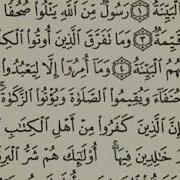 ٱلۡبَيِّنَةُ ۝١ رَسُولٞ مِّنَ ٱللَّهِ يَتۡلُواْ صُحُفٗا
قَيِّمَةٞ ۝٣ وَمَا تَفَرَّقَ ٱلَّذِينَ أُوتُواْ
ٱلۡبَيِّنَةُ ۝٤ وَمَآ أُمِرُوٓاْ إِلَّا لِيَعۡبُدُواْ
حُنَفَآءَ وَيُقِيمُواْ ٱلصَّلَوٰةَ وَيُؤۡتُواْ ٱلزَّكَوٰةَۚ
ٱلَّذِينَ كَفَرُواْ مِنۡ أَهۡلِ ٱلۡكِتَٰبِ
خَٰلِدِينَ فِيهَآۚ أُوْلَٰٓئِكَ هُمۡ شَرُّ